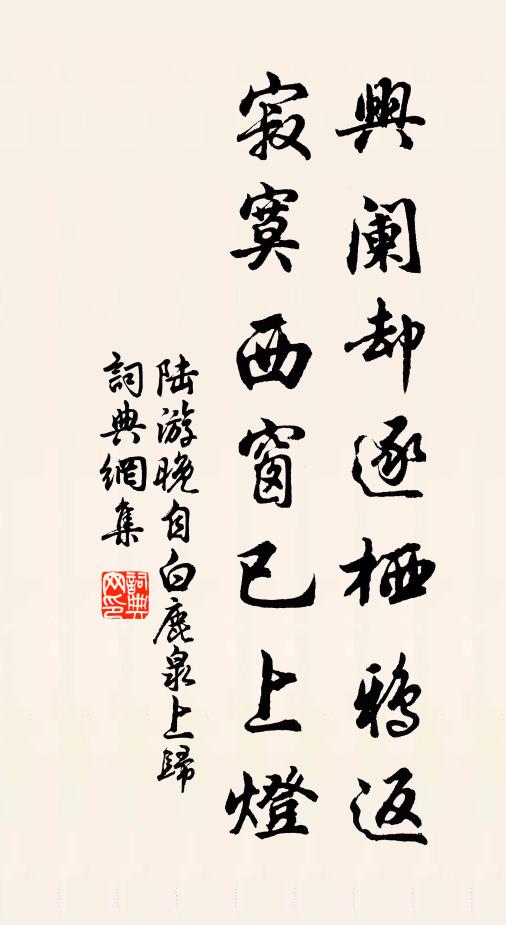 興阑却逐栖鸦返
寂寞西窗已上燈
陆游晚自白鹿泉上歸
詞典網集
詞典网印